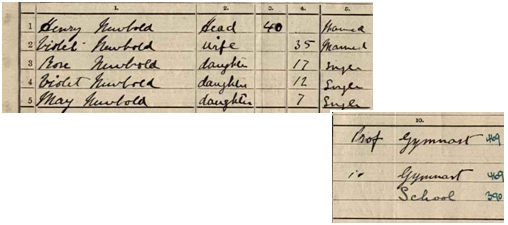 1. 2. 3. 4. 5.
1 Henry Newbold Head 40 Married
2 Violet Newbold Wife 35 Married
3 Rose Newbold daughter 17 Single
4 Violet Newbold daughter 12 Single
5 May Newbold daughter 7 Single
10.
Prof Gymnast 469
Gymnast 469
School 390